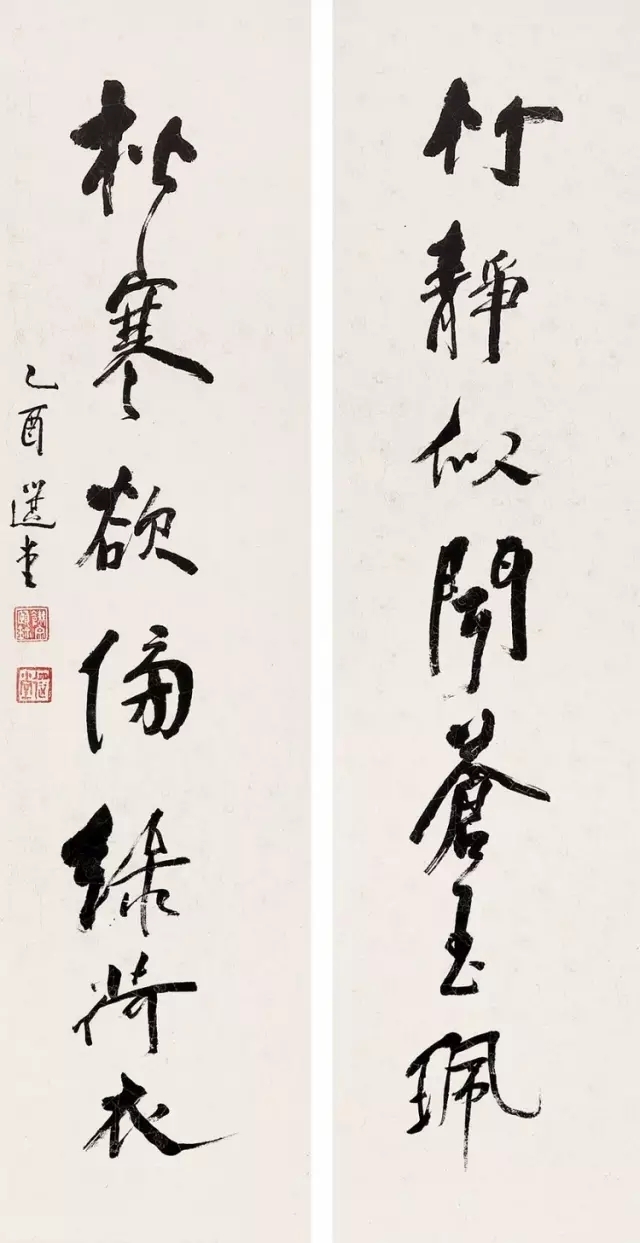 竹靜似聞蒼玉珮
松寒欲綠荷衣
乙酉 選堂